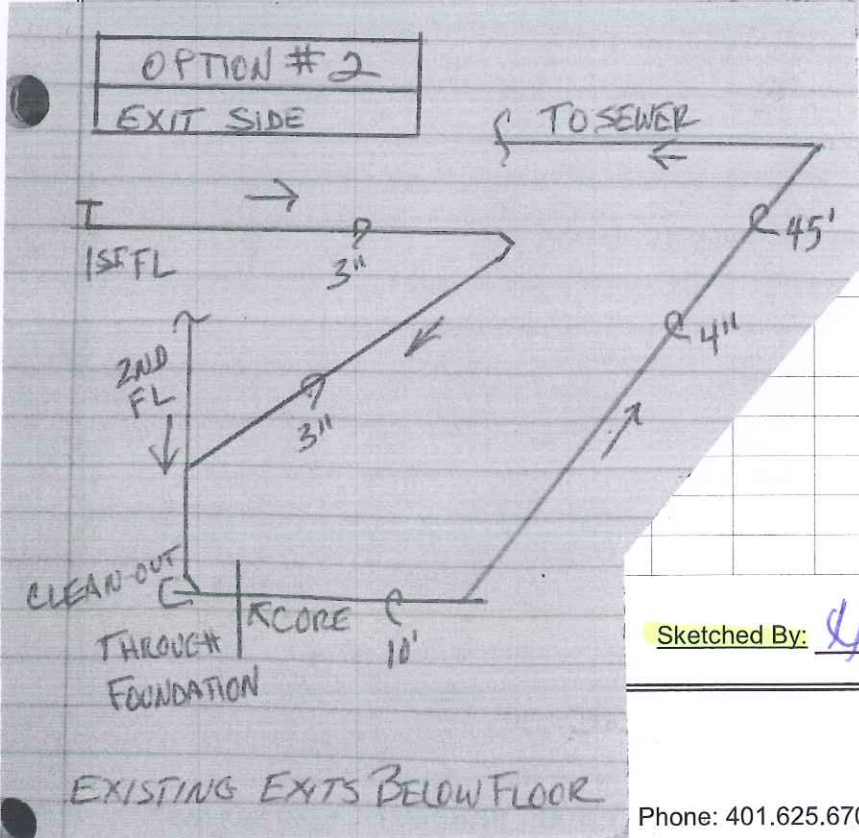 OPTION #2
EXIT SIDE
TO SEWER
1ST FL
3"
45'
4"
2ND
FL
3"
CLEAN-OUT
CORE
10'
THROUGH
FOUNDATION
Sketched By:
EXISTING EXITS BELOW FLOOR
Phone: 401.625.670